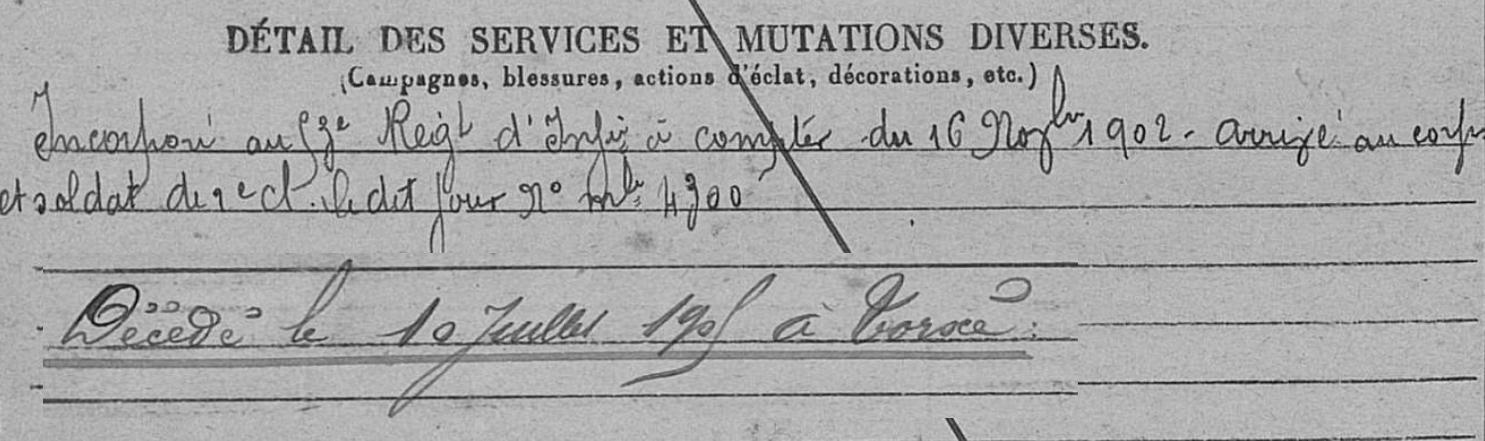 DÉTAIL DES SERVICES ET MUTATIONS DIVERSES.
(Campagnes, blessures, actions d'éclat, décorations, etc.)
Incorporé au 53e Regt d'Infie à compter du 16 Novbre 1902 - arrivé au corps
et soldat de 2e cl. le dit jour No mle 4300
Décédé le 10 Juillet 1905 à